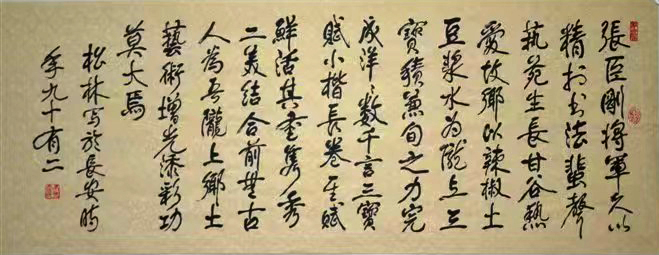 張臣剛將軍久以
精於书法蜚聲
埶苑生長甘谷熱
愛故鄉以辣椒土
豆漿水為隴上三
寶積兼旬之力完
成洋〻數千言三寶
賦小楷長卷其賦
鮮活其書雋秀
二美結合前無古
人為吾隴上鄉土
藝術增光添彩功
莫大焉
松林写於長安時
年九十有二